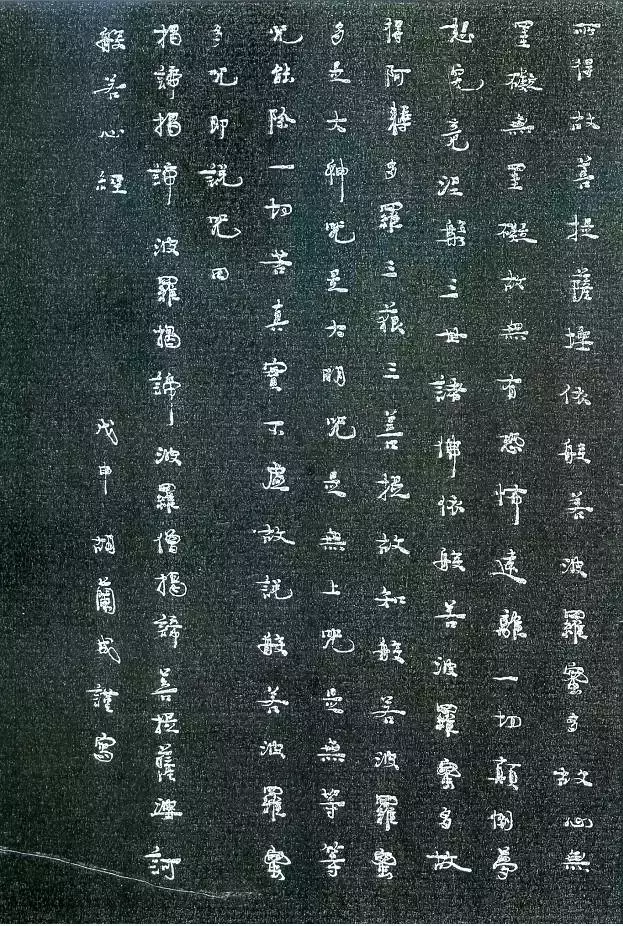 所得故菩提薩埵依般若波羅蜜多故心無
罣礙無罣礙故無有恐怖遠離一切顛倒夢
想究竟涅槃三世諸佛依般若波羅蜜多故
得阿耨多羅三藐三菩提故知般若波羅蜜
多是大神咒是大明咒是無上咒是無等等
咒能除一切苦真實不虛故說般若波羅蜜
多咒即說咒曰
揭諦揭諦 波羅揭諦 波羅僧揭諦 菩提薩婆訶
般若心經 戊申 胡蘭成謹寫